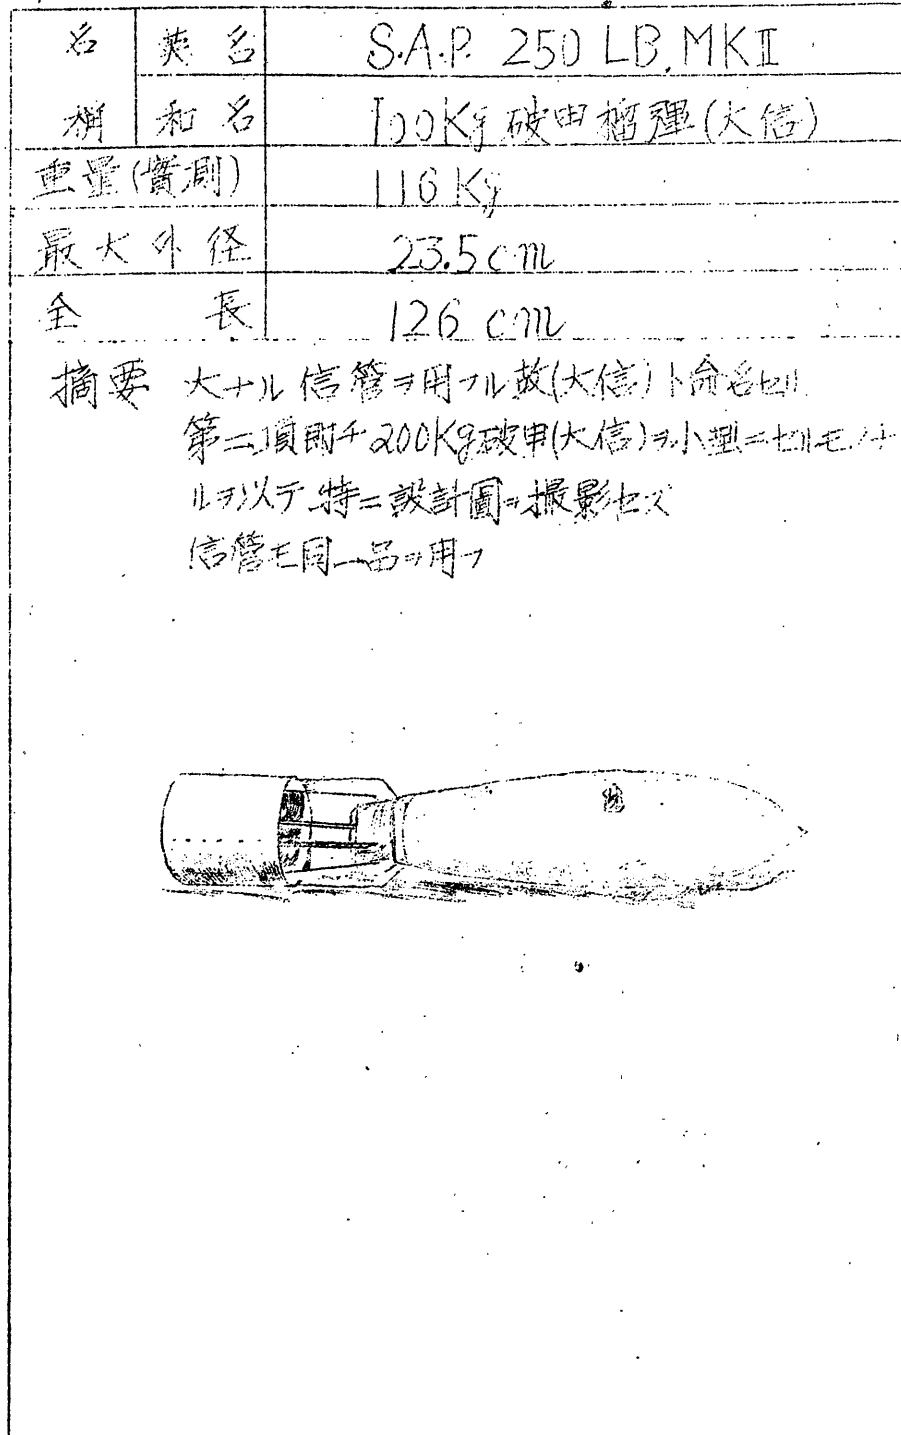 名稱 英名 S.A.P. 250 LB. MKII
和名 100Kg 破甲榴弾(大信)
重量(實測) 116 Kg
最大外径 23.5 cm
全長 126 cm
摘要 大ナル信管ヲ用フル故(大信)ト命名セリ
第二項則チ200Kg破甲(大信)ヲ小型ニセルモノナ
ルヲ以テ特ニ設計圖ヲ撮影セズ
信管モ同一品ヲ用フ